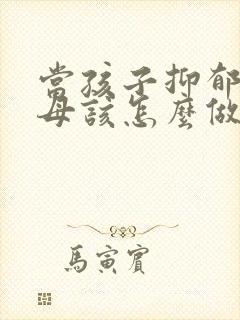 當孩子抑郁
母該怎麼做
馬寅賓